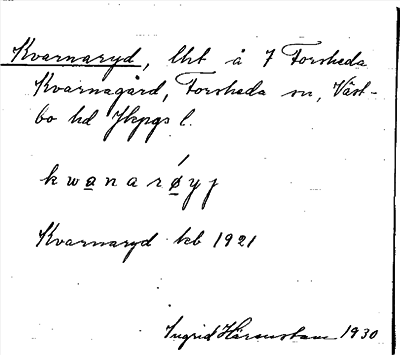 Kvarnaryd, lht å 7 Forsheda
Kvarnagård, Forsheda sn, Väst-
bo hd Jkpgs l.
kwanarǿyj
Kvarnaryd kb 1921
Ingrid Härenstam 1930